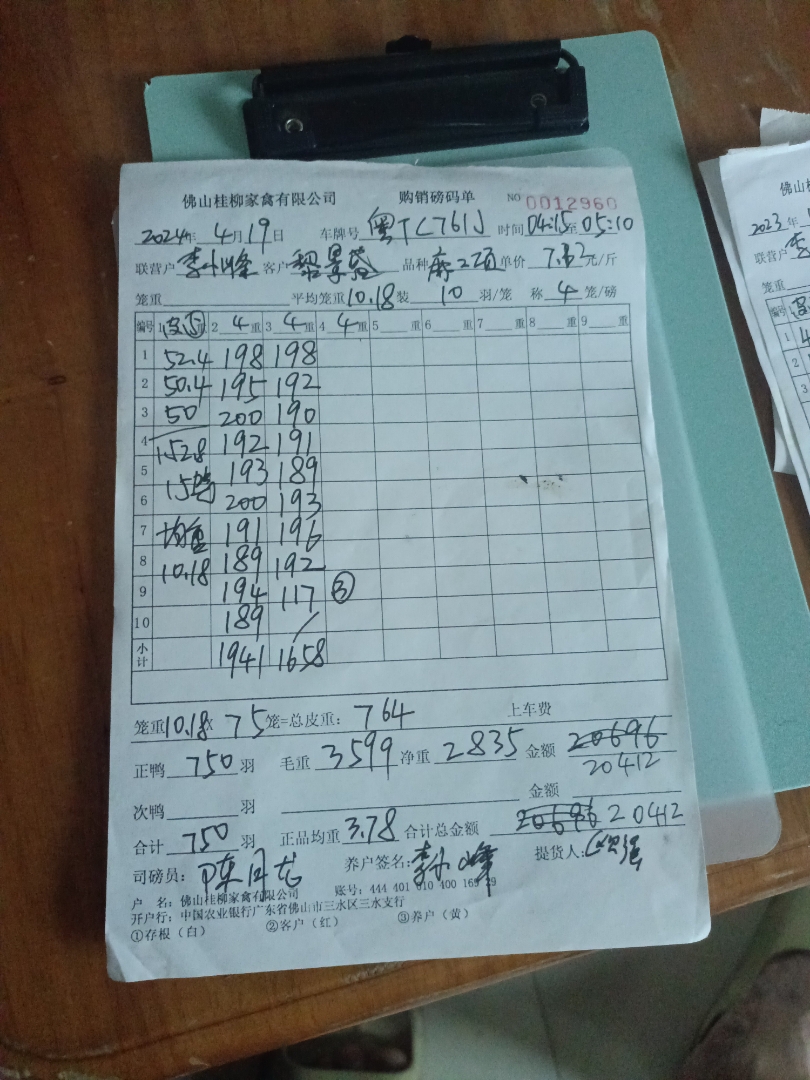 佛山桂柳家禽有限公司 购销磅码单 NO 0012960
2024年 4月19日 车牌号 粤TC761J 时间04:15至05:10
联营户 李小峰 客户 品种 麻二项 单价 7.2元/斤
笼重 平均笼重10.18装 10 羽/笼 称 4 笼/磅
编号 1 皮⑤重 2 4 重 3 4 重 4 4 重 5 重 6 重 7 重 8 重 9 重
1 52.4 198 198
2 50.4 195 192
3 50 200 190
4 152.8 192 191
5 15鸭 193 189
6 200 193
7 均重 191 196
8 10.18 189 192
9 194 117 ③
10 189 /
小计 1941 1658
笼重10.18× 75笼=总皮重: 764 上车费
正鸭 750 羽 毛重 3599 净重 2835 金额 20696
20412
次鸭 羽 金额
合计 750 羽 正品均重 3.78 合计总金额 20696 20412
司磅员: 陈月龙 养户签名: 李小峰 提货人:
户 名: 佛山桂柳家禽有限公司 账号: 444 401 010 400 169 29
开户行: 中国农业银行广东省佛山市三水区三水支行
①存根(白) ②客户(红) ③养户(黄)
佛山
2023年
联营户 李
笼重
编号
1
2
3